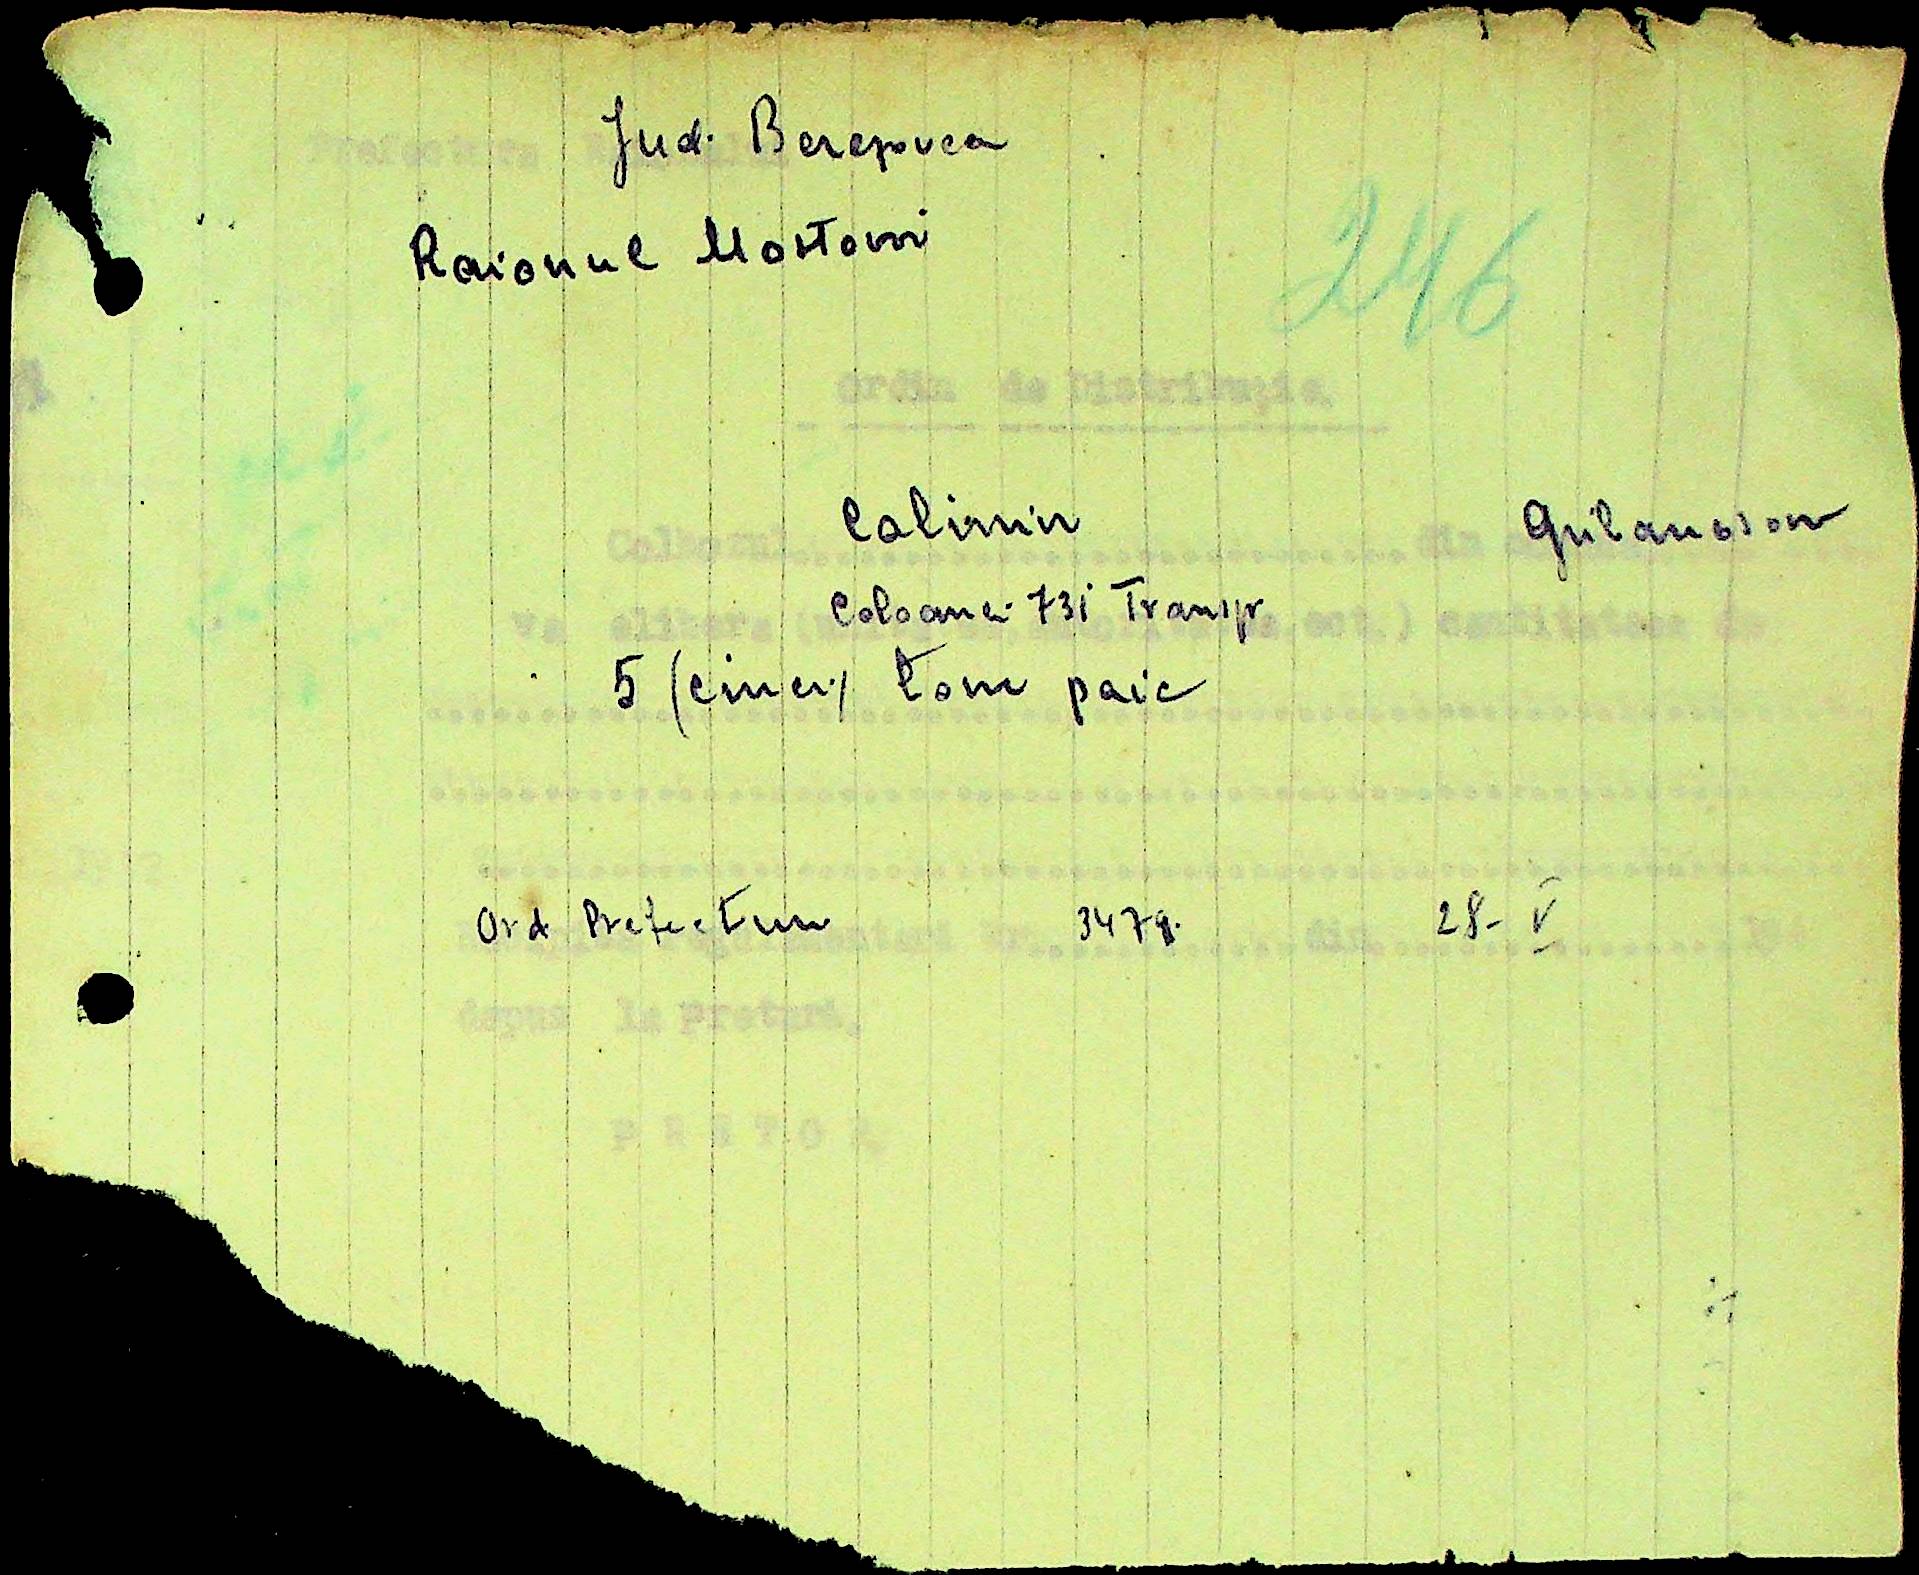 Prefectura Jud. Berezovca
Raionul Mostovoi
246
Ordin de Distribuţie.
Colhozul Calinin din
Coloana 731 Transp.
va elibera ( ect.) cantitatea de
5 (cinci) tone paie
Ord Prefecturii Nr. 3479. din 28-V 194
depus la Pretură.
PRETOR,